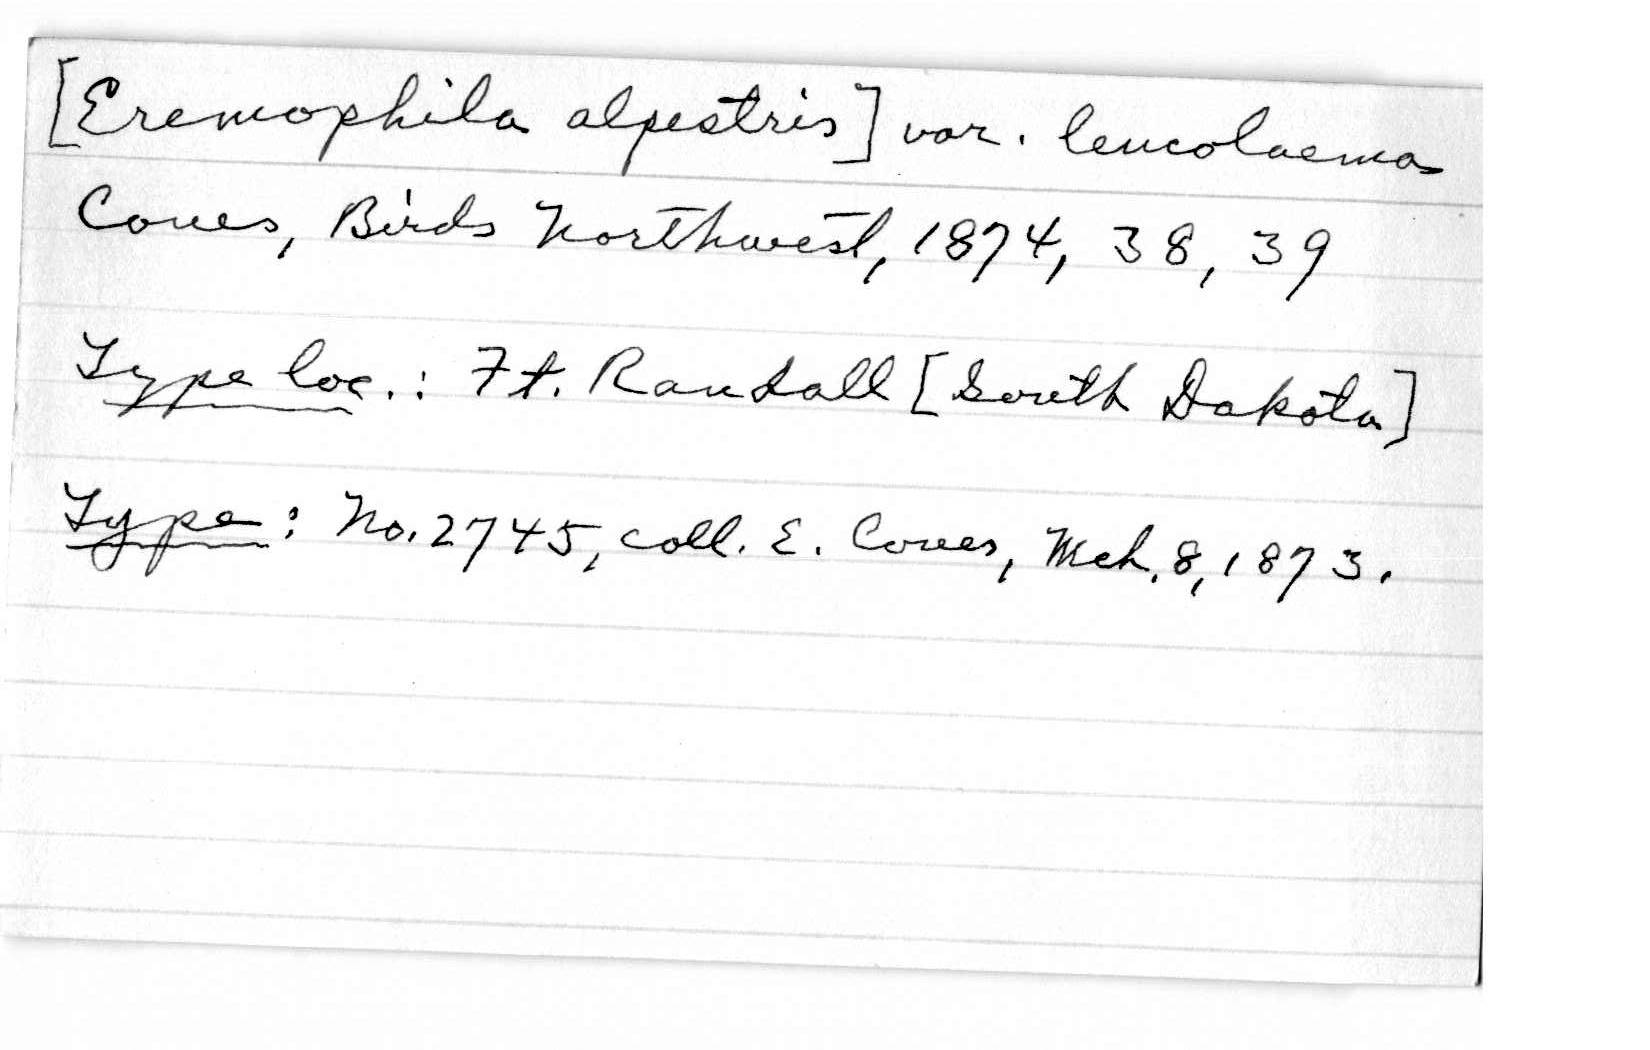 [Eremophila alpestris] var. leucolaema
Coues, Birds Northwest, 1874, 38, 39
Type loc.: Ft. Randall [South Dakota]
Type: No. 2745, coll. E. Coues, Mch. 8, 1873.